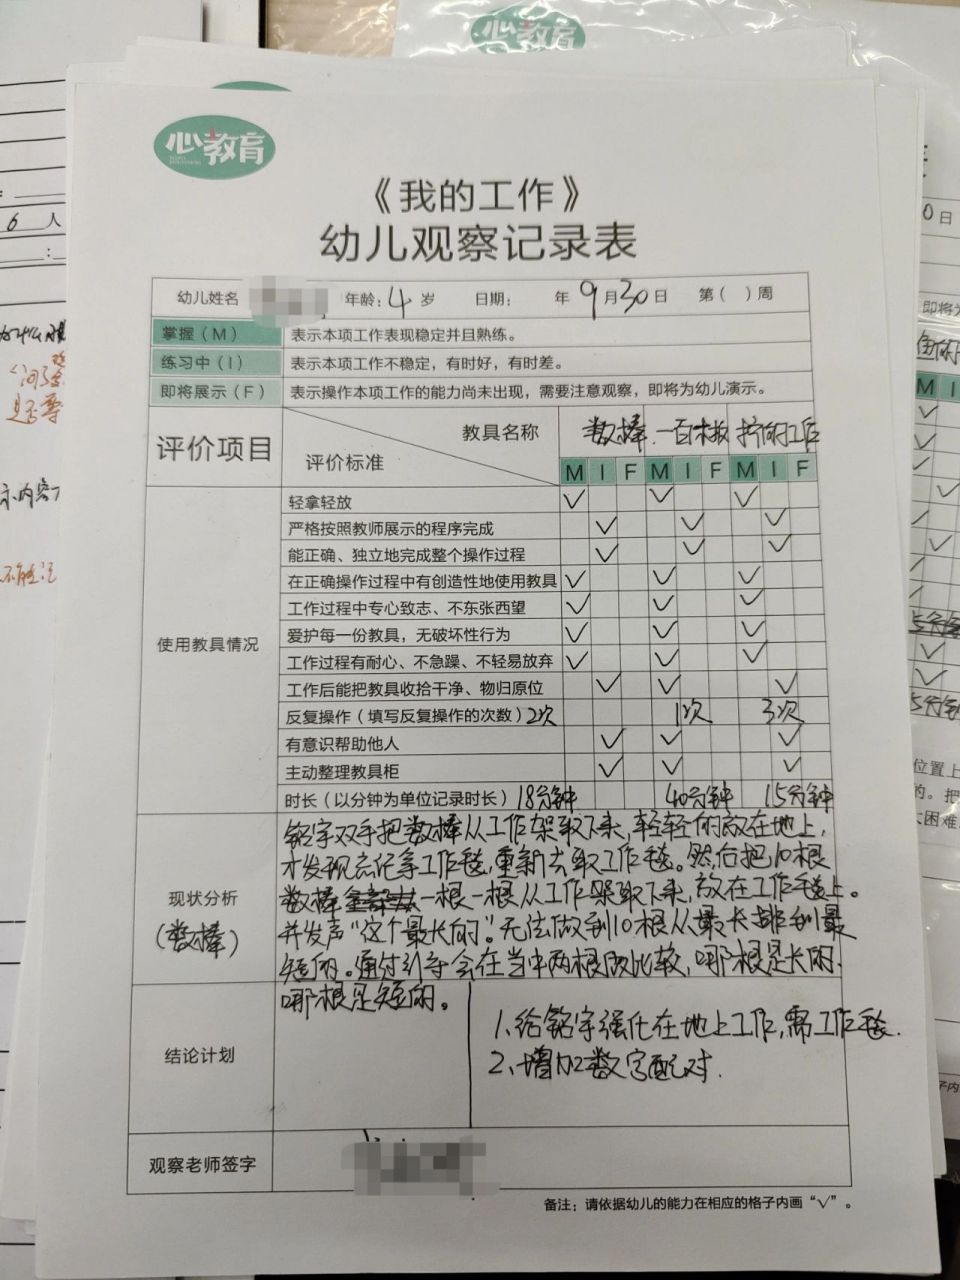 心教育
心教育
《我的工作》
幼儿观察记录表
幼儿姓名 年龄：4岁 日期： 年 9月30日 第（ ）周
掌握（M） 表示本项工作表现稳定并且熟练。
练习中（I） 表示本项工作不稳定，有时好，有时差。
即将展示（F） 表示操作本项工作的能力尚未出现，需要注意观察，即将为幼儿演示。
评价项目 教具名称 数棒 一百木板 拧的工作
评价标准
M I F M I F M I F
使用教具情况
轻拿轻放 ✓ ✓ ✓
严格按照教师展示的程序完成 ✓ ✓ ✓
能正确、独立地完成整个操作过程 ✓ ✓ ✓
在正确操作过程中有创造性地使用教具 ✓ ✓ ✓
工作过程中专心致志、不东张西望 ✓ ✓ ✓
爱护每一份教具，无破坏性行为 ✓ ✓ ✓
工作过程有耐心、不急躁、不轻易放弃 ✓ ✓ ✓
工作后能把教具收拾干净、物归原位 ✓ ✓ ✓
反复操作（填写反复操作的次数）2次 1次 3次
有意识帮助他人 ✓ ✓ ✓
主动整理教具柜 ✓ ✓ ✓
时长（以分钟为单位记录时长）18分钟 40分钟 15分钟
现状分析
（数棒）
铭宇双手把数棒从工作架取下来，轻轻的放在地上，
才发现忘记拿工作毯，重新去取工作毯。然后把10根
数棒一根一根从工作架取下来，放在工作毯上。
并发声“这个最长的”。无法做到10根从最长排到最
短的。通过引导会在当中两根做比较，哪根是长的、
哪根是短的。
结论计划
1、给铭宇强化在地上工作，需工作毯.
2、增加数字配对.
观察老师签字
备注：请依据幼儿的能力在相应的格子内画“√”。
6 人